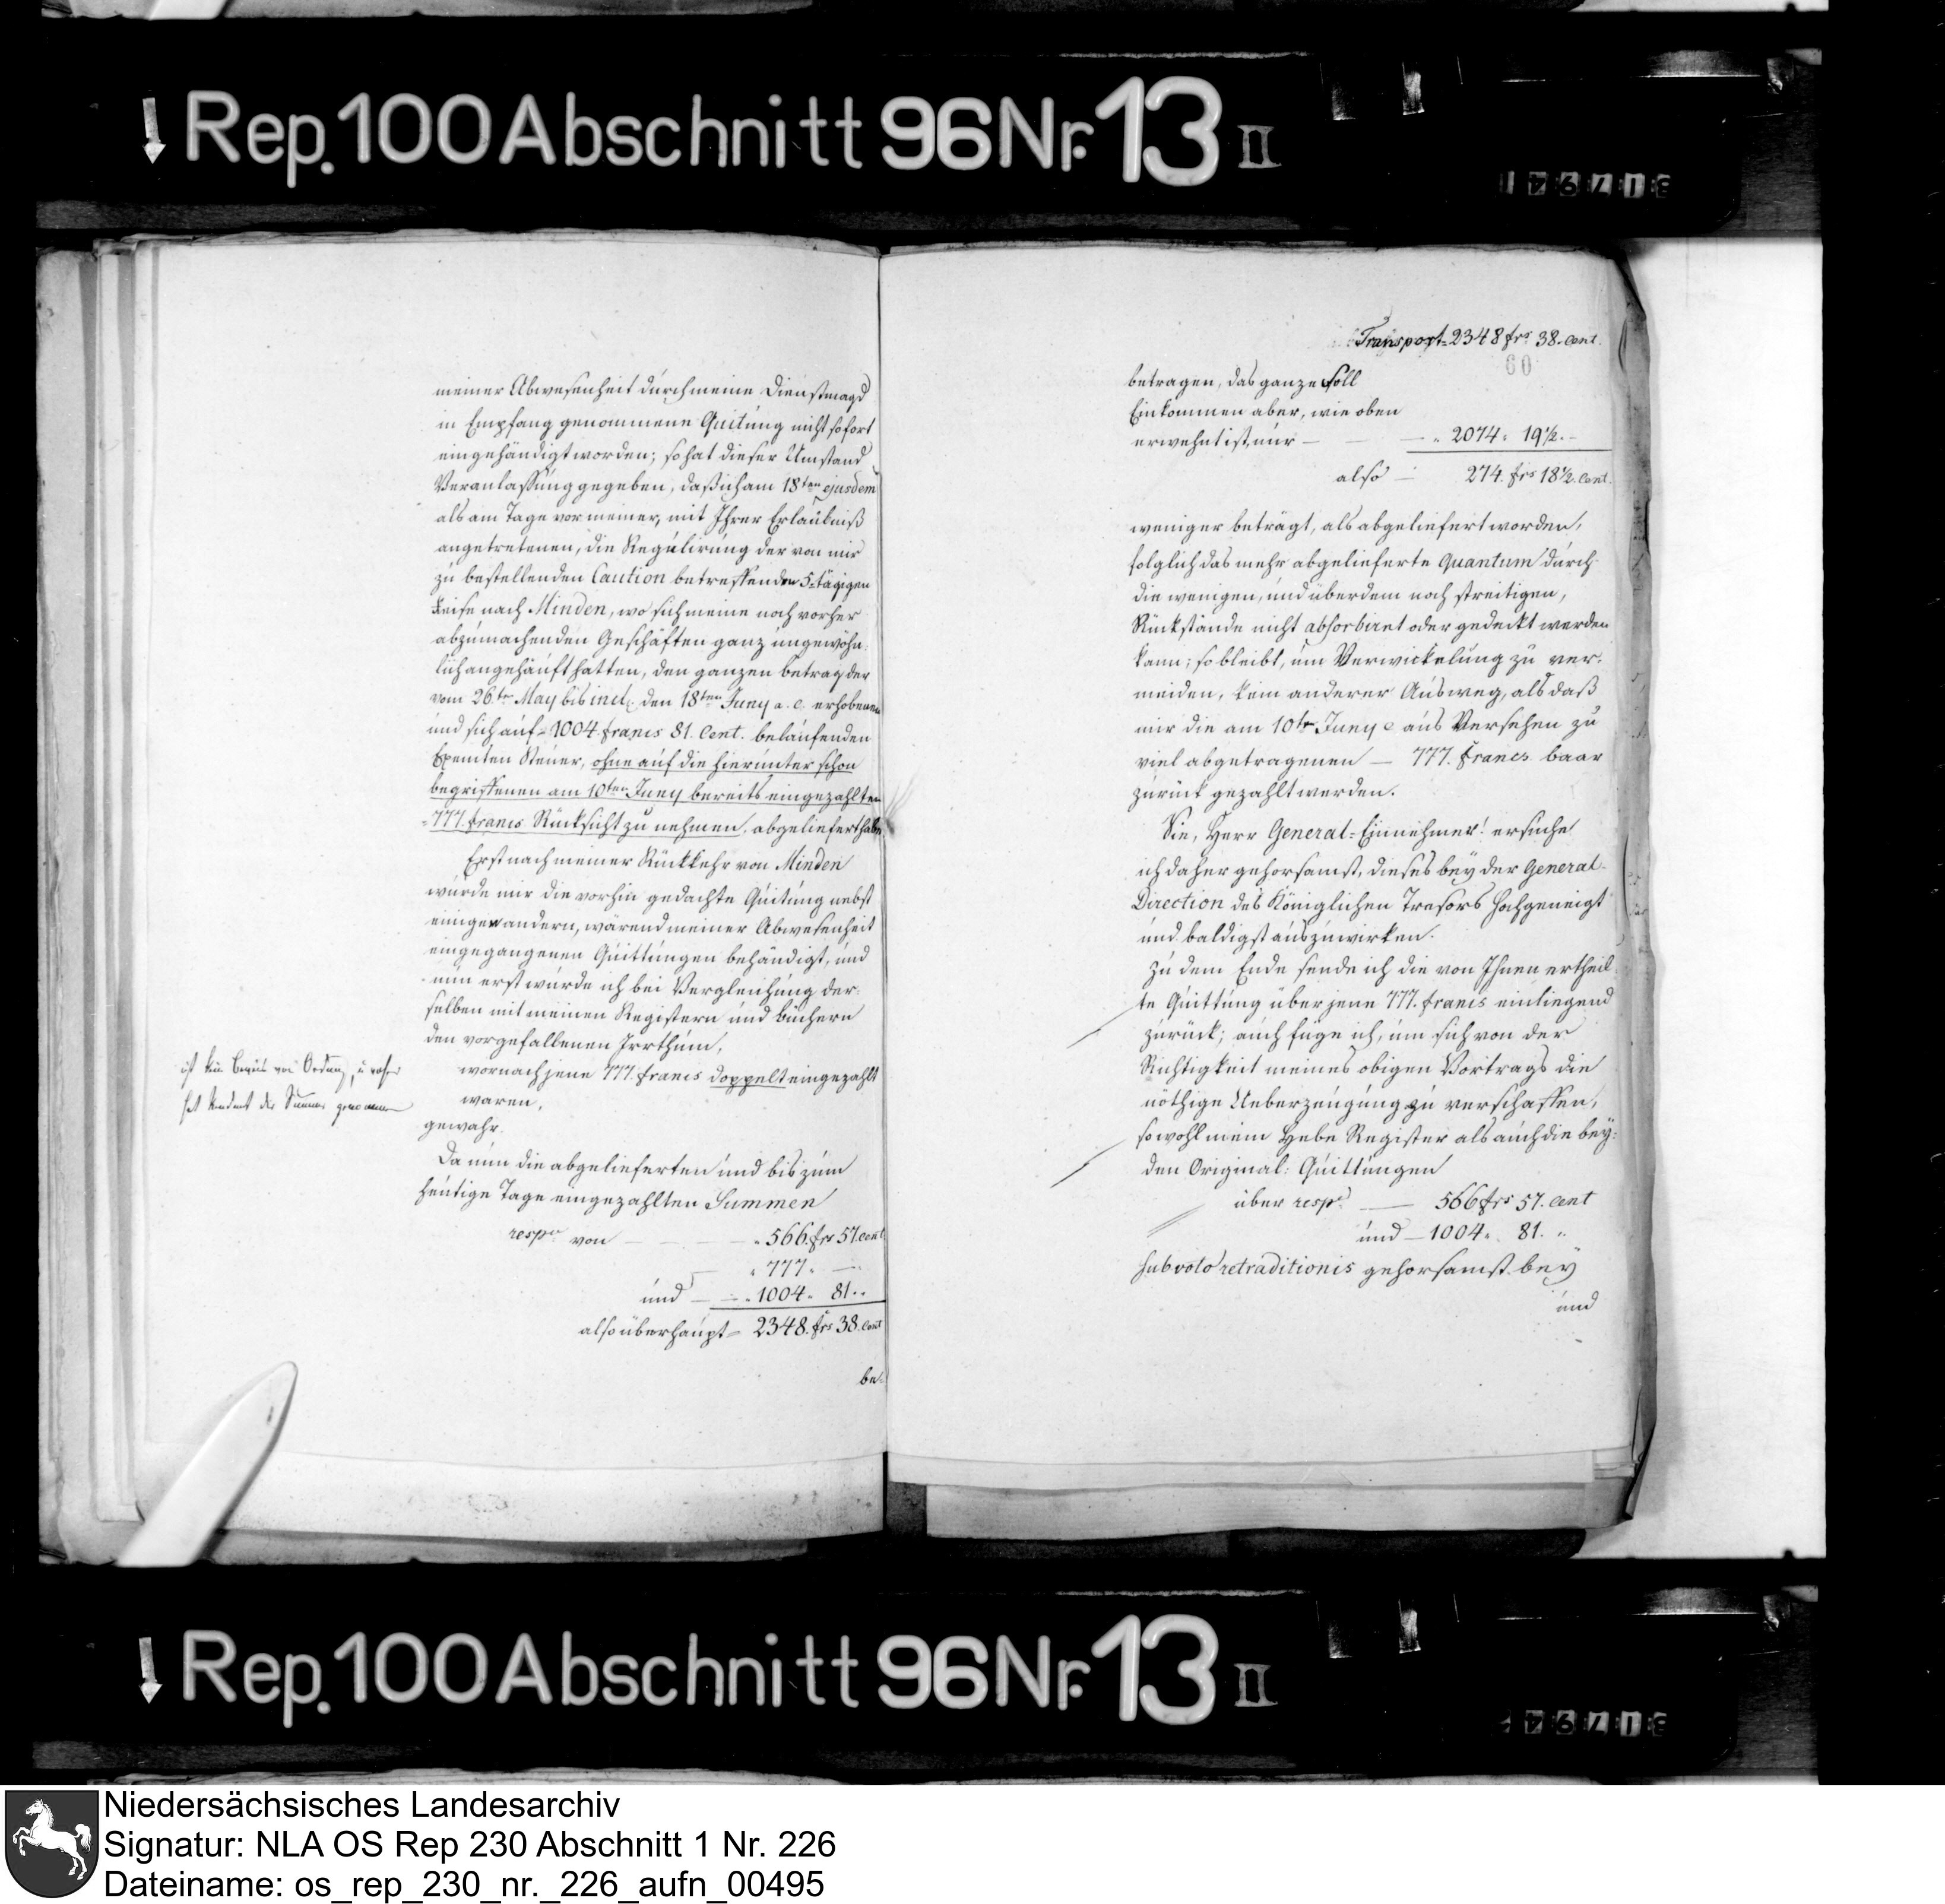 Rep. 100 Abschnitt 96 Nr. 13 II
meiner Abwesenheit durch meine Dienstmagd
in Empfang genommene Quitung nicht sofort
eingehändigt worden; so hat dieser Umstand
Veranlassung gegeben, daß ich am 18ten ejusdem
als am Tage vor meiner, mit Ihrer Erlaubniß
angetretenen, die Regulirung der von mir
zu bestellenden Caution betreffenden 5-tägigen
Reise nach Minden, wo sich meine noch vorher
abzumachenden Geschäften ganz ungewöhn-
lich angehäuft hatten, den ganzen betrag der
vom 26.ten May bis incl. den 18ten Juny a. c. erhobenen
und sich auf 1004 francs 81. Cent. belaufenden
Exemten Steuer, ohne auf die hierunter schon
begriffenen am 10ten Juny bereits eingezahlten
777. francs Rücksicht zu nehmen, abgeliefert habe.
Erst nach meiner Rückkehr von Minden
wurde mir die vorhin gedachte Quitung nebst
einigen andern, wärend meiner Abwesenheit
eingegangenen Quittungen behändigt, und
nun erst wurde ich bei Vergleichung der-
selben mit meinen Registern und büchern
den vorgefallenen Irrthum,
wornach jene 777. francs doppelt eingezahlt
waren,
gewahr.
ist kein Beweis von Ordnung, u
hat der Summe genommen
Da nun die abgelieferten und bis zum
heutige Tage eingezahlten Summen
respve von — 566. frs 57. cent
777. —
und — 1004. 81.
also überhaupt = 2348. frs 38. Cent
be-
Transport = 2348 frs 38. Cent.
60
betragen, das ganze Soll
Einkommen aber, wie oben
erwehnt ist, nur — 2074. 19½. —
also — 274. frs 18½. Cent.
weniger beträgt, als abgeliefert worden,
folglich das mehr abgelieferte Quantum durch
die wenigen, und überdem noch streitigen,
Rückstände nicht absorbirt oder gedeckt werden
kann; so bleibt, um Verwickelung zu ver-
meiden, kein anderer Ausweg, als daß
mir die am 10ten Juny c. aus Versehen zu
viel abgetragenen — 777. francs baar
zurück gezahlt werden.
Sie, Herr General-Einnehmer! ersuche
ich daher gehorsamst, dieses bey der General-
Direction des Königlichen Tresors hochgeneigt
und baldigst auszuwirken.
Zu dem Ende sende ich die von Ihnen ertheil-
te Quittung über jene 777. francs einliegend
zurück; auch füge ich, um sich von der
Richtigkeit meines obigen Vortrags die
nöthige Ueberzeugung zu verschaffen,
sowohl mein Hebe Register als auch die bey-
den Original-Quittungen
über respe — 566 frs 57. Cent
und — 1004. 81.
sub voto retraditionis gehorsamst bey
und
Rep. 100 Abschnitt 96 Nr. 13 II
Niedersächsisches Landesarchiv
Signatur: NLA OS Rep 230 Abschnitt 1 Nr. 226
Dateiname: os_rep_230_nr._226_aufn_00495